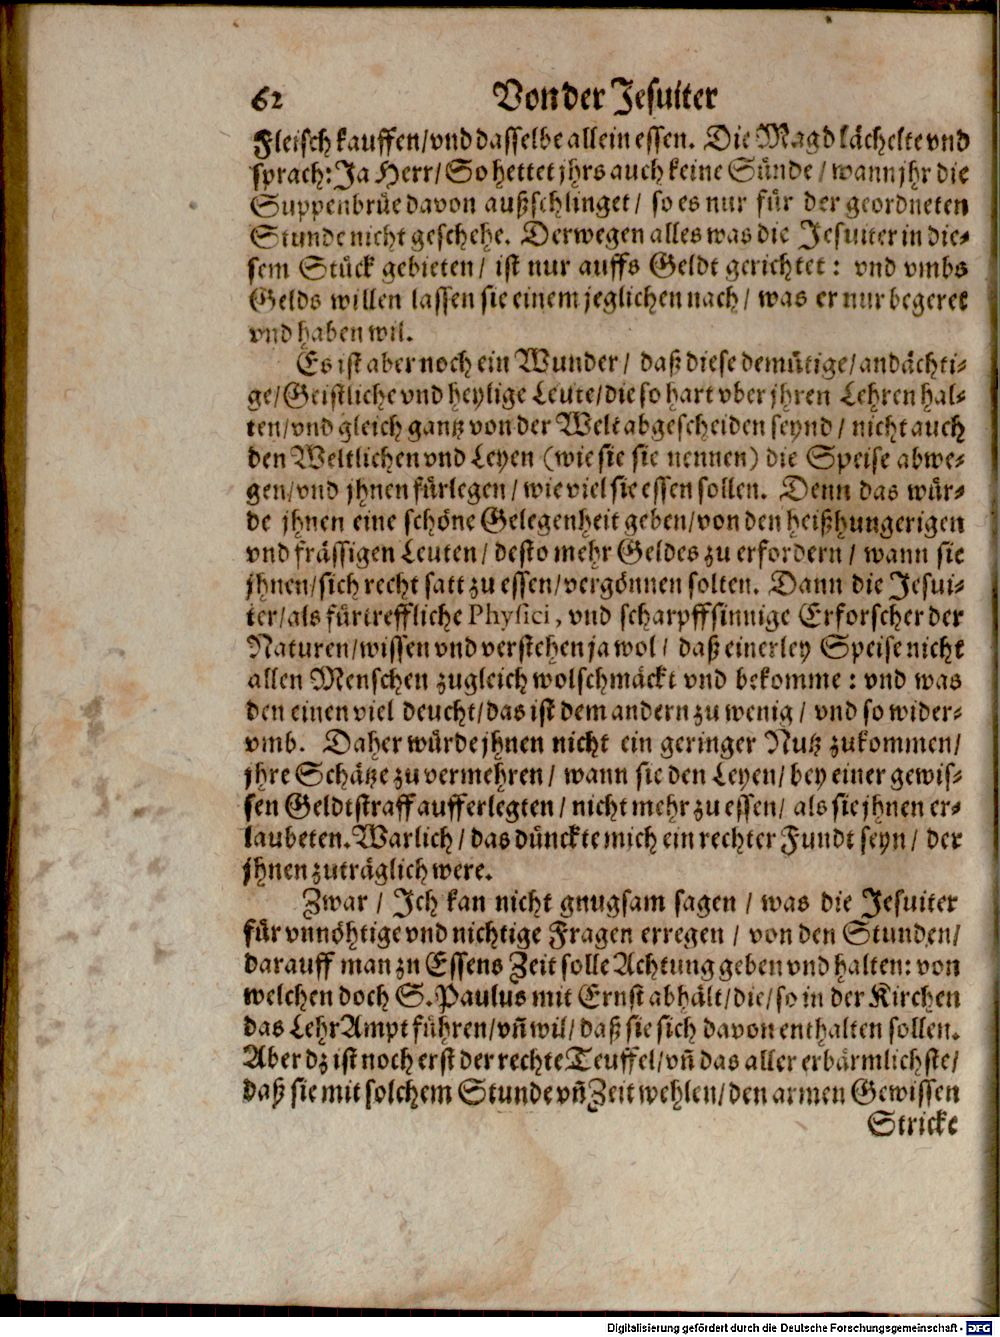 62 Von der Jesuiter
Fleisch kauffen/vnd dasselbe allein essen. Die Magd lächelte vnd
sprach: Ja Herr/ So hettet jhrs auch keine Sünde/ wann jhr die
Suppenbrüe davon außschlinget/ so es nur für der geordneten
Stunde nicht geschehe. Derwegen alles was die Jesuiter in die-
sem Stück gebieten/ ist nur auffs Geldt gerichtet: vnd vmbs
Gelds willen lassen sie einem jeglichen nach/ was er nur begeret
vnd haben wil.
Es ist aber noch ein Wunder/ daß diese demütige/andächti-
ge/Geistliche vnd heylige Leute/die so hart vber jhren Lehren hal-
ten/vnd gleich gantz von der Welt abgescheiden seynd/ nicht auch
den Weltlichen vnd Leyen (wie sie sie nennen) die Speise abwe-
gen/vnd jhnen fürlegen/ wie viel sie essen sollen. Denn das wür-
de jhnen eine schöne Gelegenheit geben/von den heißhungerigen
vnd frässigen Leuten/ desto mehr Geldes zu erfordern/ wann sie
jhnen/sich recht satt zu essen/vergönnen solten. Dann die Jesui-
ter/als fürtreffliche Physici, vnd scharpffsinnige Erforscher der
Naturen/wissen vnd verstehen ja wol/ daß einerley Speise nicht
allen Menschen zugleich wolschmäckt vnd bekomme: vnd was
den einen viel deucht/das ist dem andern zu wenig/ vnd so wider-
vmb. Daher würde jhnen nicht ein geringer Nutz zukommen/
jhre Schätze zu vermehren/ wann sie den Leyen/ bey einer gewis-
sen Geldtstraff aufferlegten/ nicht mehr zu essen/ als sie jhnen er-
laubeten. Warlich/ das dünckte mich ein rechter Fundt seyn/ der
jhnen zuträglich were.
Zwar/ Ich kan nicht gnugsam sagen/ was die Jesuiter
für vnnöhtige vnd nichtige Fragen erregen/ von den Stunden/
darauff man zu Essens Zeit solle Achtung geben vnd halten: von
welchen doch S. Paulus mit Ernst abhält/die/so in der Kirchen
das LehrAmpt führen/vñ wil/ daß sie sich davon enthalten sollen.
Aber dz ist noch erst der rechte Teuffel/vñ das aller erbärmlichste/
daß sie mit solchem Stunde vñ Zeit wehlen/den armen Gewissen
Stricke
Digitalisierung gefördert durch die Deutsche Forschungsgemeinschaft - DFG